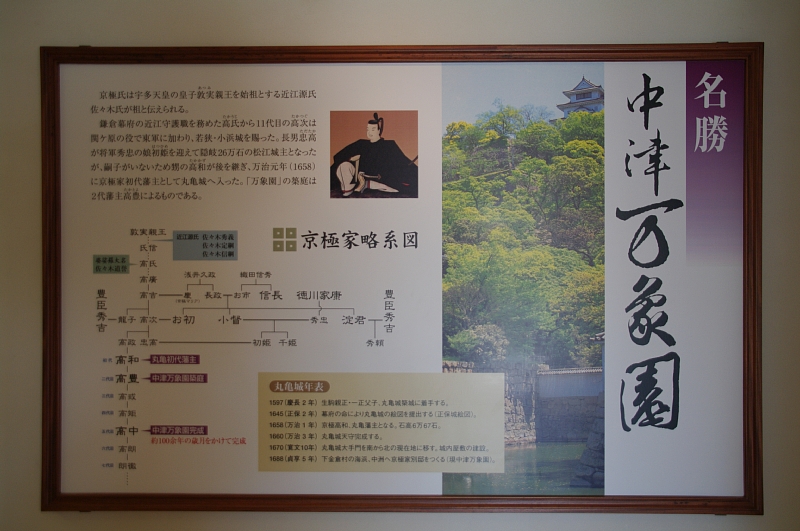 名勝
中津万象園
京極氏は宇多天皇の皇子敦実親王を始祖とする近江源氏
佐々木氏が祖と伝えられる。
鎌倉幕府の近江守護職を務めた高氏から11代目の高次は
関ケ原の役で東軍に加わり、若狭・小浜城を賜った。長男忠高
が将軍秀忠の娘初姫を迎えて隠岐26万石の松江城主となった
が、嗣子がいないため甥の高和が後を継ぎ、万治元年（1658）
に京極家初代藩主として丸亀城へ入った。「万象園」の築庭は
2代藩主高豊によるものである。
京極家略系図
敦実親王
近江源氏 佐々木秀義
佐々木定綱
佐々木信綱
氏信
高氏
佐々木道誉
高廣
浅井久政
織田信秀
高吉
慶
長政
お市
信長
徳川家康
豊臣秀吉
豊臣秀吉
龍子
高次
お初
小督
秀忠
淀君
高政
忠高
初姫
千姫
秀頼
高和
丸亀初代藩主
高豊
中津万象園築庭
高或
高矩
高中
中津万象園完成
約100余年の歳月をかけて完成
高朗
丸亀城年表
1597（慶長2年） 生駒親正・一正父子、丸亀城築城に着手する。
1645（正保2年） 幕府の命により丸亀城の絵図を提出する（正保城絵図）。
1658（万治1年） 京極高和、丸亀藩主となる。石高6万67石。
1660（万治3年） 丸亀城天守完成する。
1670（寛文10年） 丸亀城大手門を南から北の現在地に移す。城内屋敷の建設。
1688（貞享5年） 下金倉村の海浜、中洲へ京極家別邸をつくる（現中津万象園）。